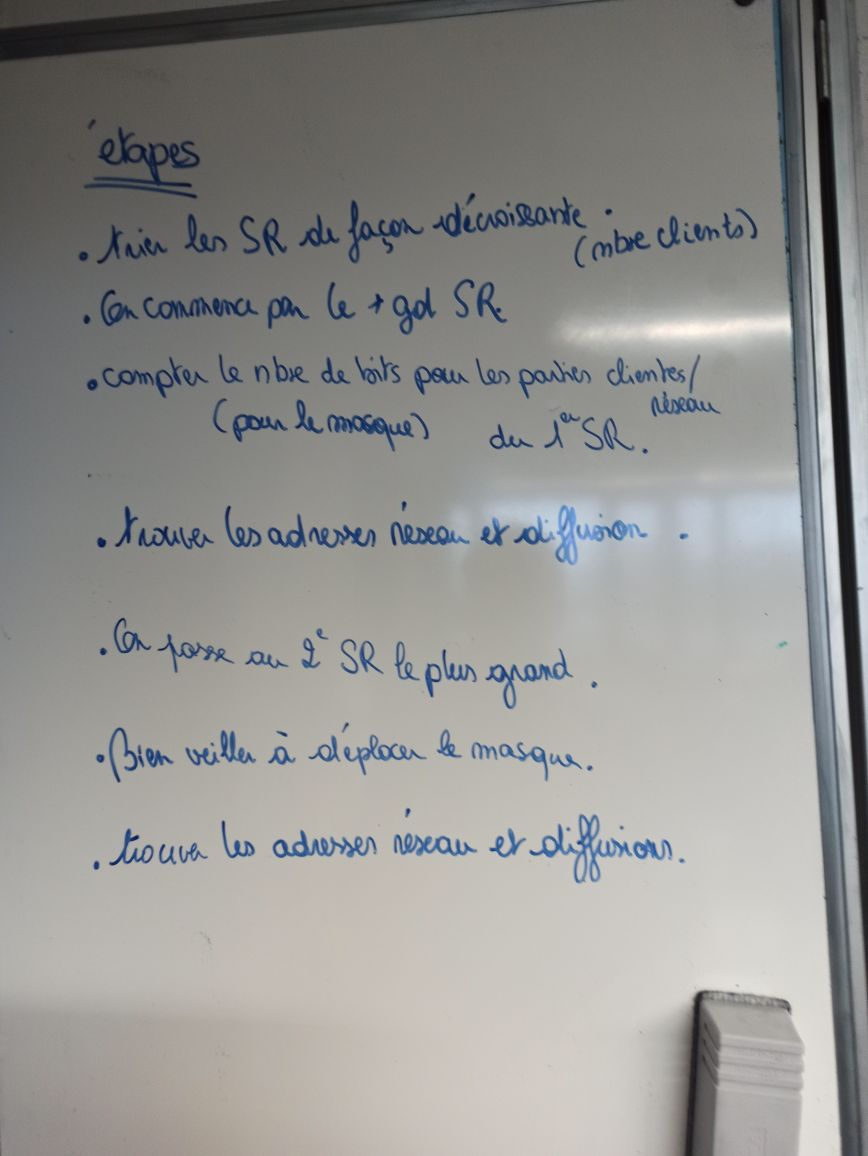 étapes
• trier les SR de façon décroissante.
(nbre clients)
• On commence par le + gd SR.
• compter le nbre de bits pour les parties clientes/
réseau
(pour le masque) du 1er SR.
• trouver les adresses réseau et diffusion.
• On passe au 2e SR le plus grand.
• Bien veiller à déplacer le masque.
• trouver les adresses réseau et diffusions.